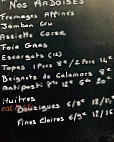 Nos ARDOISES
Fromages Affinés
Jambon Cru
Assiette Corse
Foie Gras
Escargots (12)
Tapas 1 Pers 8€ / 2 Pers 14€
Beignets de Calamars 8€
Antipasti Pte 12€ Gde 20
Huîtres
Bouzigues 6/8€ 12/15
Fines Claires 6/9€ 12/16